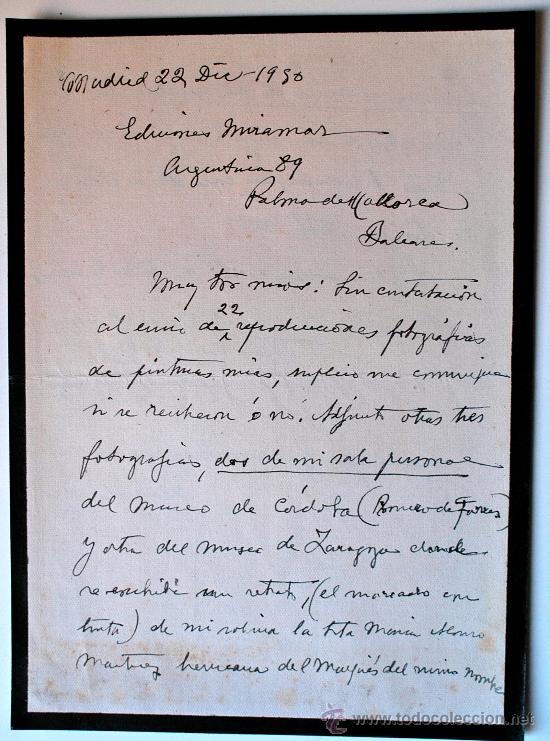 Madrid 22 Dic - 1950
Ediciones Miramar
Argentina 89
Palma de Mallorca
Baleares.
Muy Sres mios: Sin contestación
al envio de 22 reproducciones fotográficas
de pinturas mias, suplico me comunique
si se recibieron ó nó. Adjunto otras tres
fotografias, dos de mi sala personal
del Museo de Córdoba (Romero de Torres)
y otra del Museo de Zaragoza donde
se exhibe un retrato, (el marcado con
tinta) de mi sobrina la Srta Maria Alonso
Martinez hermana del Marqués del mismo nombre
todocoleccion
www.todocoleccion.net